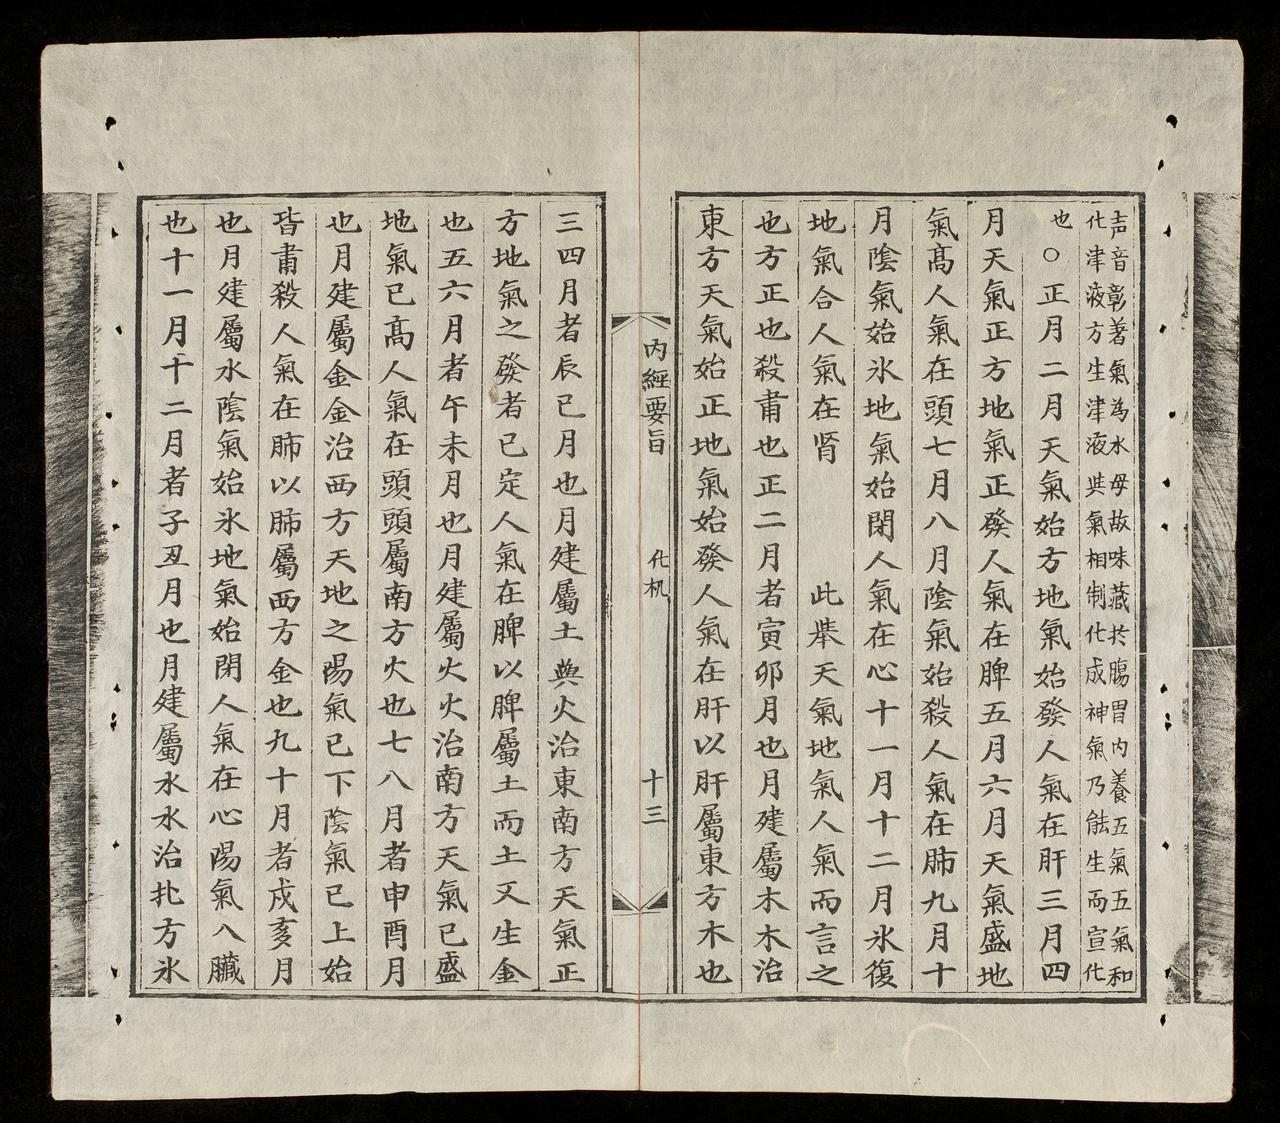 声音彰著氣為水母故味藏於腸胃内養五氣五氣和
化津液方生津液共氣相制化成神氣乃能生而宣化
也○正月二月天氣始方地氣始發人氣在肝三月四
月天氣正方地氣正發人氣在脾五月六月天氣盛地
氣髙人氣在頭七月八月陰氣始殺人氣在肺九月十
月陰氣始氷地氣始閉人氣在心十一月十二月氷復
地氣合人氣在肾　此㪯天氣地氣人氣而言之
也方正也殺肅也正二月者寅卯月也月建屬木木治
東方天氣始正地氣始發人氣在肝以肝屬東方木也
内經要旨　化机　十三
三四月者辰巳月也月建屬土與火治東南方天氣正
方地氣之發者已定人氣在脾以脾屬土而土又生金
也五六月者午未月也月建屬火火治南方天氣已盛
地氣已髙人氣在頭頭屬南方火也七八月者申酉月
也月建屬金金治西方天地之陽氣已下陰氣已上始
皆肅殺人氣在肺以肺屬西方金也九十月者戌亥月
也月建屬水陰氣始氷地氣始閉人氣在心陽氣入臟
也十一月十二月者子丑月也月建屬水水治北方氷